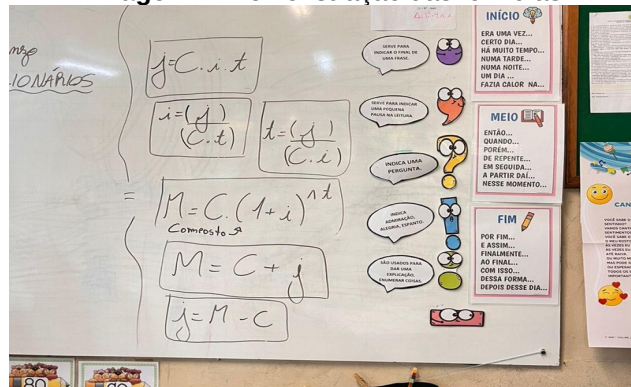 IONÁRIOS
j=C.i.t
i=(j)
(C.t)
t=(j)
(C.i)
=
M=C.(1+i)^t
Composto
M=C+j
j=M-C
SERVE PARA
INDICAR O FINAL DE
UMA FRASE.
SERVE PARA INDICAR
UMA PEQUENA
PAUSA NA LEITURA.
INDICA UMA
PERGUNTA.
INDICA
ADMIRAÇÃO,
ALEGRIA, ESPANTO.
SÃO USADOS PARA
DAR UMA
EXPLICAÇÃO,
ENUMERAR COISAS.
INÍCIO
ERA UMA VEZ...
CERTO DIA...
HÁ MUITO TEMPO...
NUMA TARDE...
NUMA NOITE...
UM DIA ...
FAZIA CALOR NA...
MEIO
ENTÃO...
QUANDO...
PORÉM...
DE REPENTE...
EM SEGUIDA...
A PARTIR DAÍ...
NESSE MOMENTO...
FIM
POR FIM...
E ASSIM...
FINALMENTE...
AO FINAL...
COM ISSO...
DESSA FORMA...
DEPOIS DESSE DIA...
CAN
80